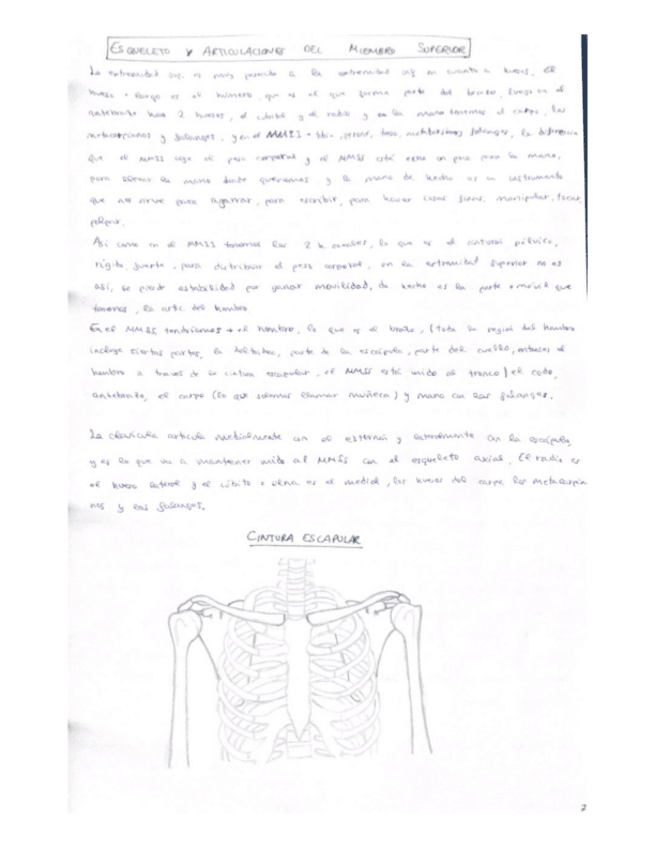 ESQUELETO Y ARTICULACIONES DEL MIEMBRO SUPERIOR
La extremidad sup. es muy parecida a la extremidad inf en cuanto a huesos. El
hueso + largo es el húmero, que es el que forma parte del brazo, luego en el
antebrazo hay 2 huesos, el cúbito y el radio y en la mano tenemos el carpo, los
metacarpianos y falanges, y en el MMII = tibia, peroné, tarso, metatarsianos y falanges, la diferencia
que el MMII coge el peso corporal y el MMSS está echo un poco para la mano,
para llevar la mano donde queramos y la mano de hecho es un instrumento
que nos sirve para agarrar, para escribir, para hacer cosas finas, manipular, tocar,
palpar.
Así como en el MMII tenemos los 2 h. coxales, lo que es el cintura pélvica,
rígida, fuerte, para distribuir el peso corporal, en la extremidad superior no es
así, se pierde estabilidad por ganar movilidad, de hecho es la parte + móvil que
tenemos, la artic. del hombro
En el MMSS tendríamos → el hombro, lo que es el brazo, (toda la región del hombro
incluye ciertas partes, la deltoidea, parte de la escápula, parte del cuello, entonces el
hombro a través de la cintura escapular, el MMSS está unido al tronco) el codo,
antebrazo, el carpo (lo que solemos llamar muñeca) y mano con las falanges.
La clavícula articula medialmente con el esternón y lateralmente con la escápula,
y es lo que va a mantener unido al MMSS con el esqueleto axial. El radio es
el hueso lateral y el cúbito o ulna es el medial, los huesos del carpo, los metacarpia
nos y las falanges.
CINTURA ESCAPULAR
2